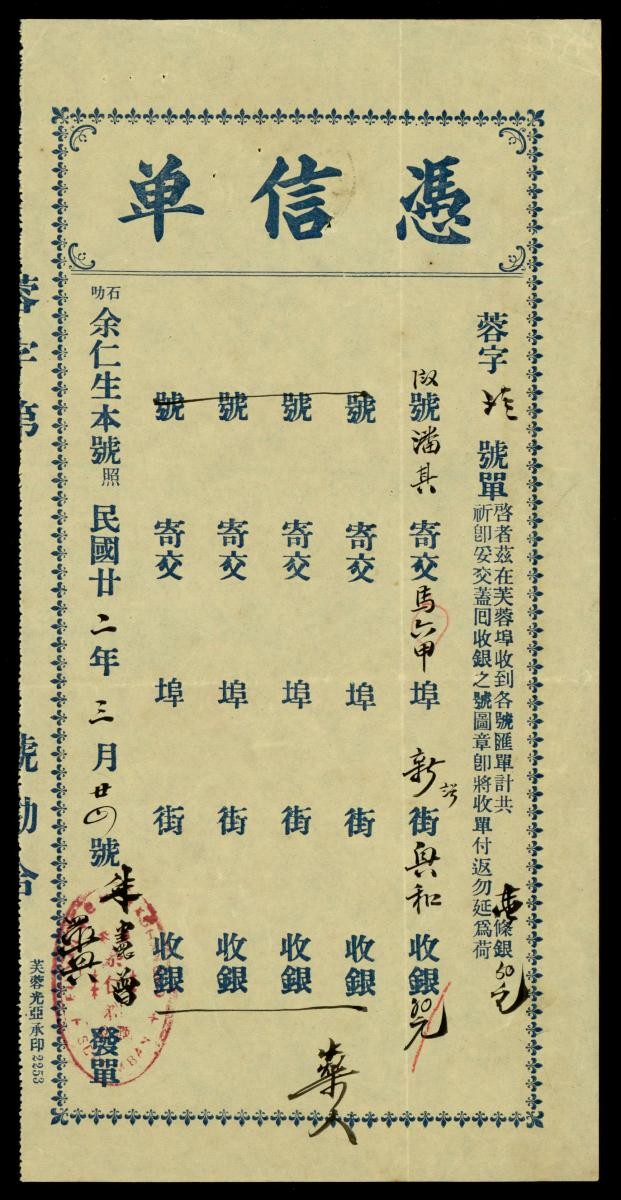 憑信单
蓉字 號單
啓者茲在芙蓉埠收到各號匯單計共 條銀
祈卽妥交蓋囘收銀之號圖章卽將收單付返勿延爲荷
號潘其寄交馬六甲埠新 街興和收銀 元
號寄交埠街收銀
號寄交埠街收銀
號寄交埠街收銀
號寄交埠街收銀
石叻余仁生本號照民國廿二年三月廿四號 發單
蓉字第 號勘合
芙蓉光亞承印2253